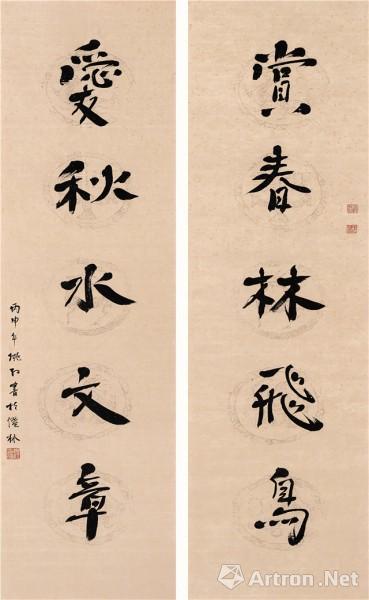 賞春林飛鳥
愛秋水文章
丙申年
書於
Artron.Net